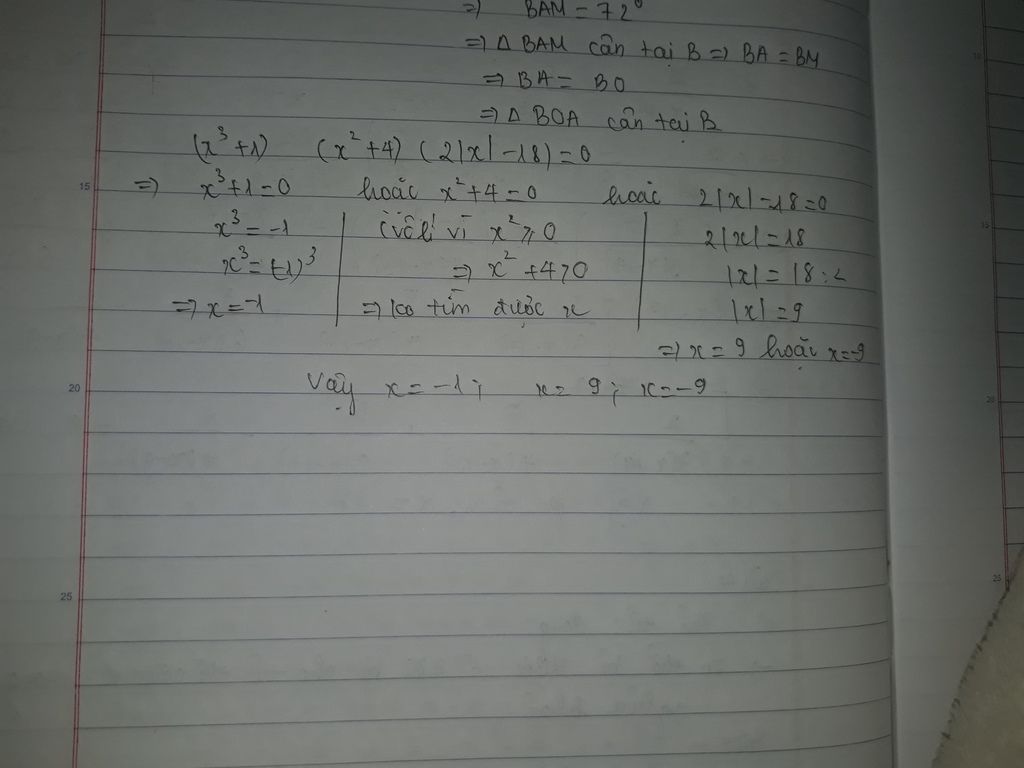 => BAM = 72°
=> Δ BAM cân tại B => BA = BM
=> BA = BO
=> Δ BOA cân tại B
(x³+1) (x²+4) (2|x|-18)=0
15 => x³+1=0 hoặc x²+4=0 hoặc 2|x|-18=0
x³=-1 vì x²≥0 2|x|=18
x³=(-1)³ => x²+4>0 |x|=18:2
=> x=-1 => ko tìm được x |x|=9
=> x=9 hoặc x=-9
20 Vậy x=-1; x=9; x=-9
25
15
20
25